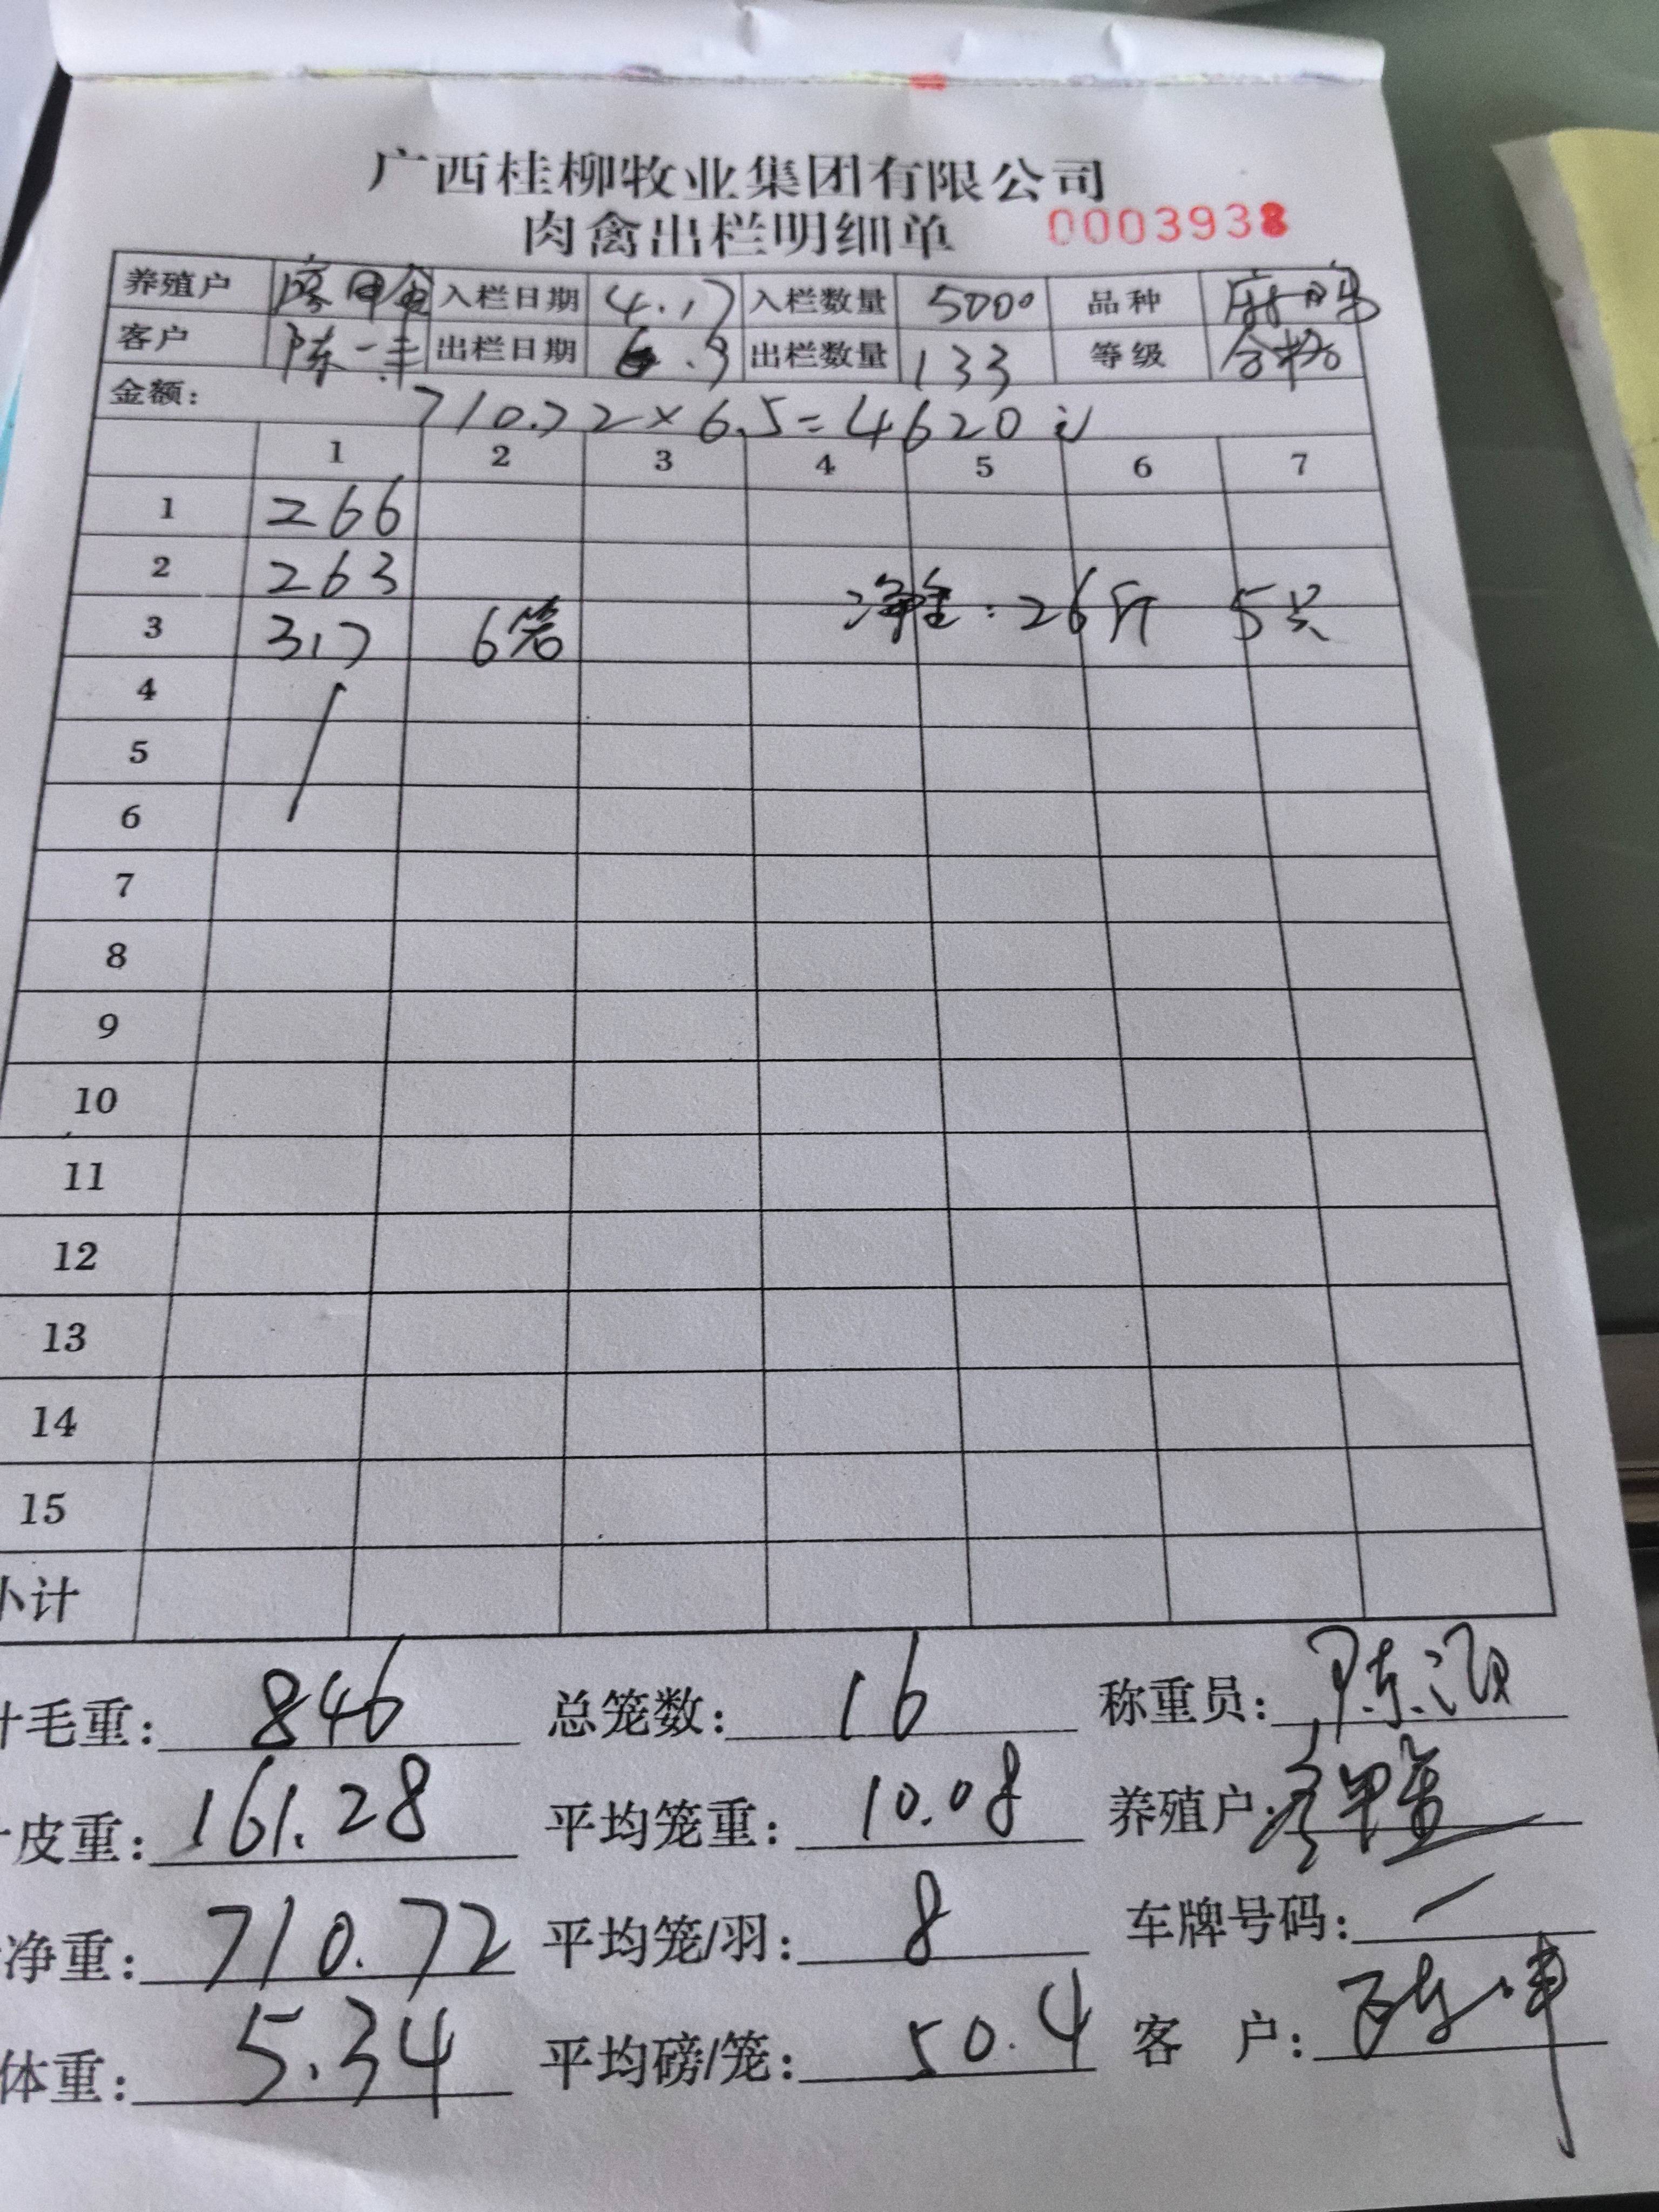 广西桂柳牧业集团有限公司
肉禽出栏明细单 0003938
养殖户 入栏日期 4.17 入栏数量 5000 品种 麻鸭
客户 陈一丰 出栏日期 6.9 出栏数量 133 等级 合格
金额: 710.72×6.5=4620元
1 2 3 4 5 6 7
1 266
2 263
3 317 6笼 净重:26斤 5只
4
5
6
7
8
9
10
11
12
13
14
15
小计
计毛重: 846 总笼数: 16 称重员:
计皮重: 161.28 平均笼重: 10.08 养殖户:
净重: 710.72 平均笼/羽: 8 车牌号码: 一
体重: 5.34 平均磅/笼: 50.4 客 户: